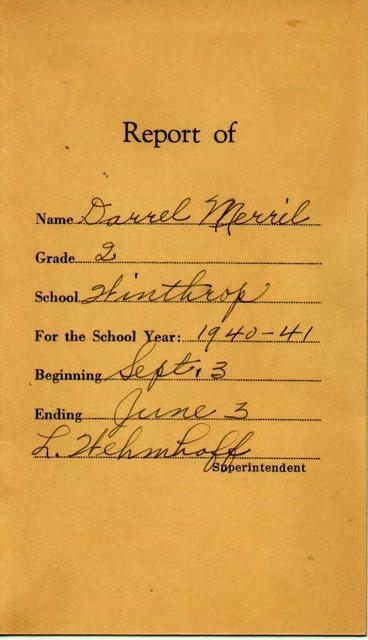 Report of
Name Darrel Merril
Grade 2
School Winthrop
For the School Year: 1940-41
Beginning Sept. 3
Ending June 3
L. Wehmhoff
Superintendent